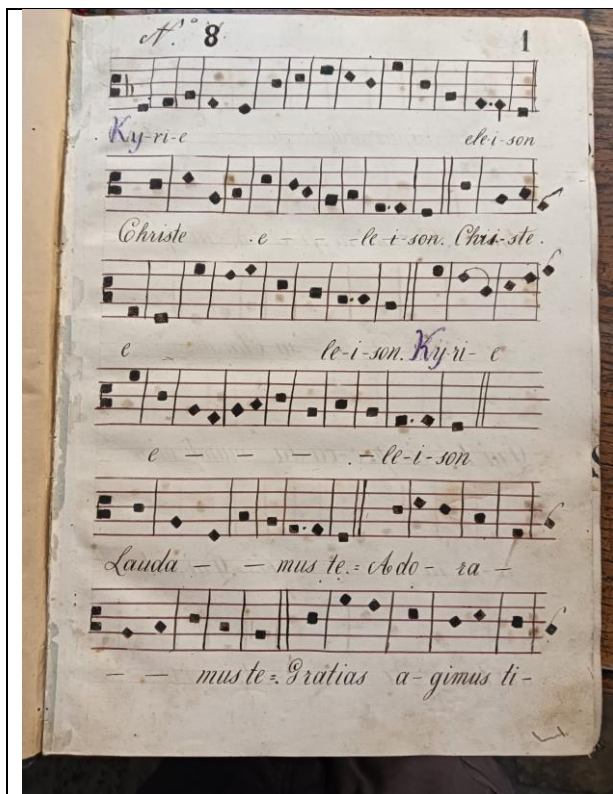 N.º 8 1
Ky-ri-e ele-i-son
Christe e - - -le-i-son. Chri-ste.
e le-i-son. Ky-ri- e
e - - - .-le-i-son
Lauda - - mus te.= Ado- ra -
- - mus te=. Gratias a-gimus ti-